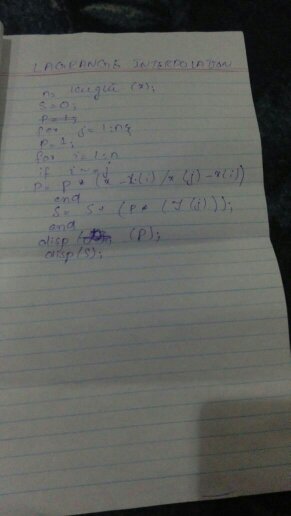 LAGRANGE INTERPOLATION
n, length (x);
S=0;
P=1;
for j=1:n
P=1;
for i=1:n
if i~=j
P= P * (x - x(i) / x(j) - x(i))
end
S= S + (P * (Y(j)));
end
disp (P);
disp(S);